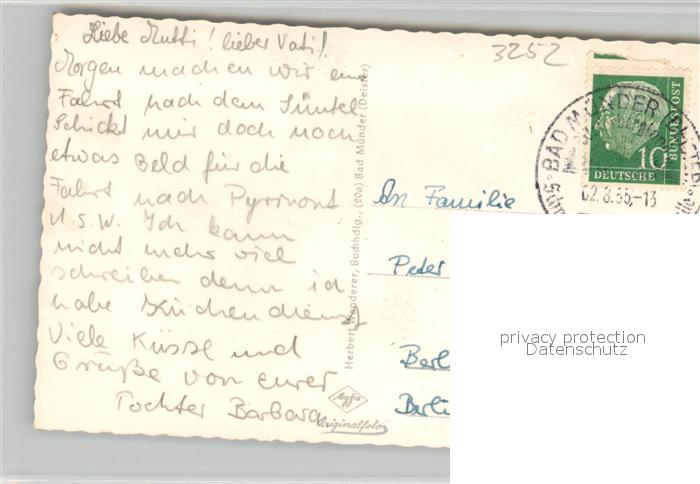 Liebe Mutti! lieber Vati!
Morgen machen wir ein
Fahrt nach dem Süntel
Schickt mir doch noch
etwas Geld für die
Fahrt nach Pyrmont
u.s.w. Ich kann
nicht mehr viel
schreiben denn ich
habe Küchendienst
Viele Küsse und
Grüße von eurer
Tochter Barbara
Herbert Wanderer, Buchhdlg., (20a) Bad Münder (Deister)
Agfa
Originalfoto
3252
BAD MÜNDER
02.8.55.-13
10
DEUTSCHE
BUNDESPOST
An Familie
Peter
Berl
Berli
privacy protection
Datenschutz